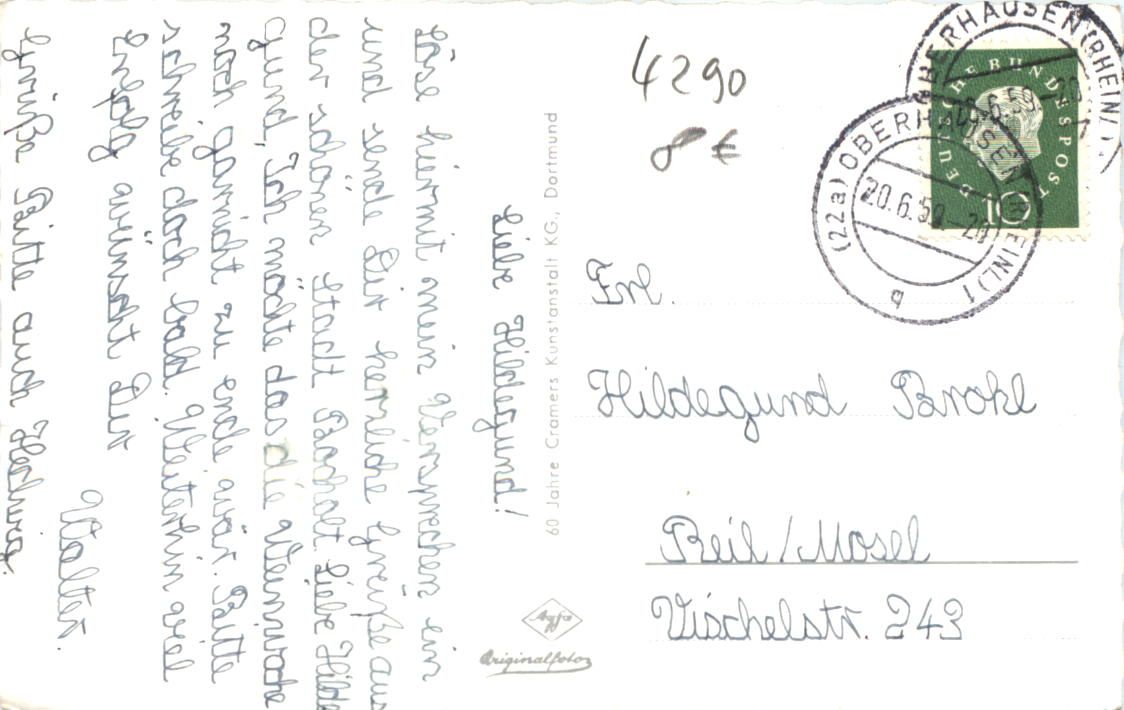 Liebe Hildegund!
Löse hiermit mein Versprechen ein
und sende Dir herrliche Grüße aus
der schönen Stadt Bocholt. Liebe Hilde
gund, Ich möchte das die Weinwoche
noch garnicht zu ende wär. Bitte
schreibe doch bald. Weiterhin viel
Erfolg wünscht Dir
Walter.
Grüße Bitte auch Hedwig.
60 Jahre Cramers Kunstanstalt KG., Dortmund
Agfa
Originalfoto
4290
8 €
DEUTSCHE BUNDESPOST
10
OBERHAUSEN (RHEINL) 1
20.6.59-20
(22a) OBERHAUSEN (RHEINL) 1
20.6.59-20
b
Frl.
Hildegund Brohl
Reil/Mosel
Vischelstr. 243